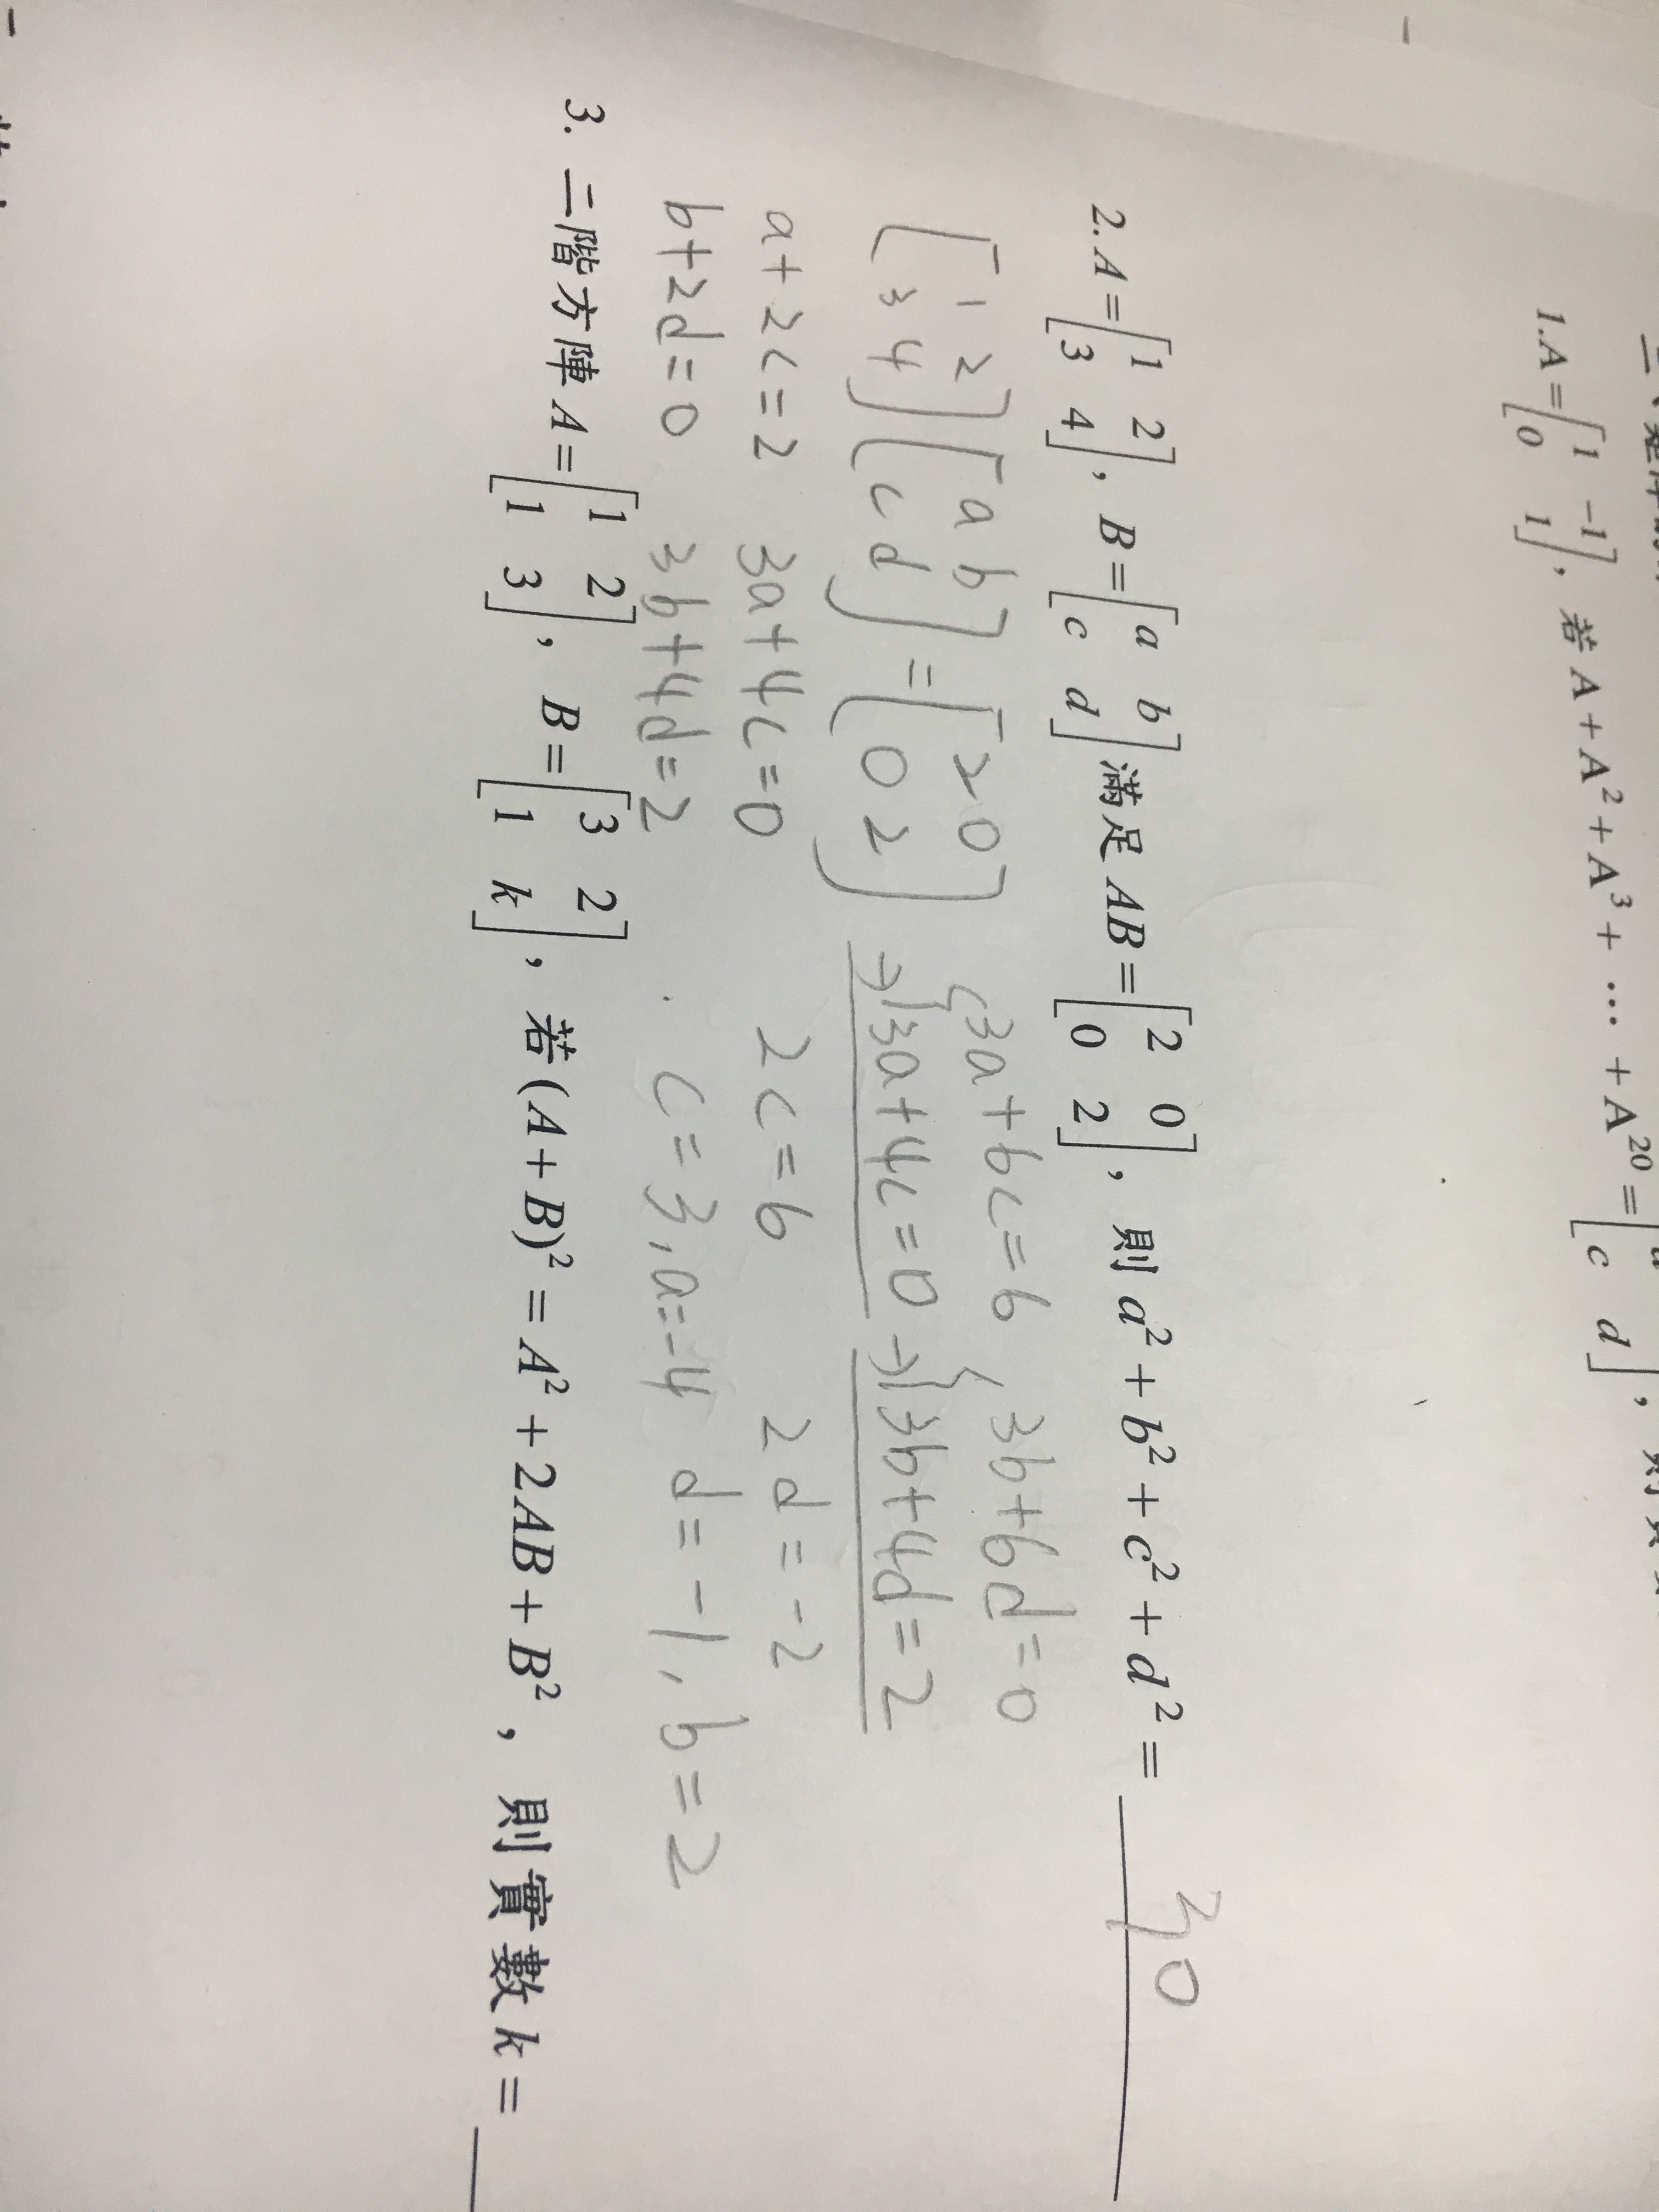 1.A=[1 -1
0 1], 若 A+A²+A³+⋯+A²⁰=[
c d],
2.A=[1 2
3 4], B=[a b
c d]滿足 AB=[2 0
0 2], 則 a²+b²+c²+d²= 30
[1 2
3 4][a b
c d]=[2 0
0 2]
a+2c=2 3a+4c=0
b+2d=0 3b+4d=2
{3a+6c=6
→{3a+4c=0
2c=6
c=3, a=-4
{3b+6d=0
→{3b+4d=2
2d=-2
d=-1, b=2
3. 二階方陣 A=[1 2
1 3], B=[3 2
1 k], 若(A+B)²=A²+2AB+B², 則實數 k=